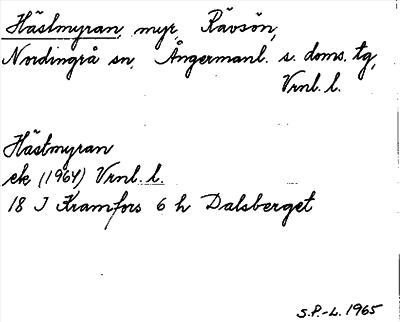 Hästmyran, myr, Rävsön,
Nordingrå sn, Ångermanl. s. doms. tg,
Vrnl. l.
Hästmyran
ek (1964) Vrnl. l.
18 I Kramfors 6 h Dalsberget
S.P.-L. 1965